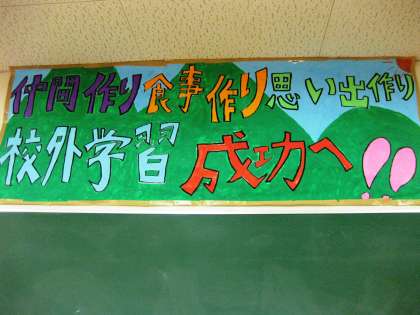 仲間作り食事作り思い出作り
校外学習成功へ!!